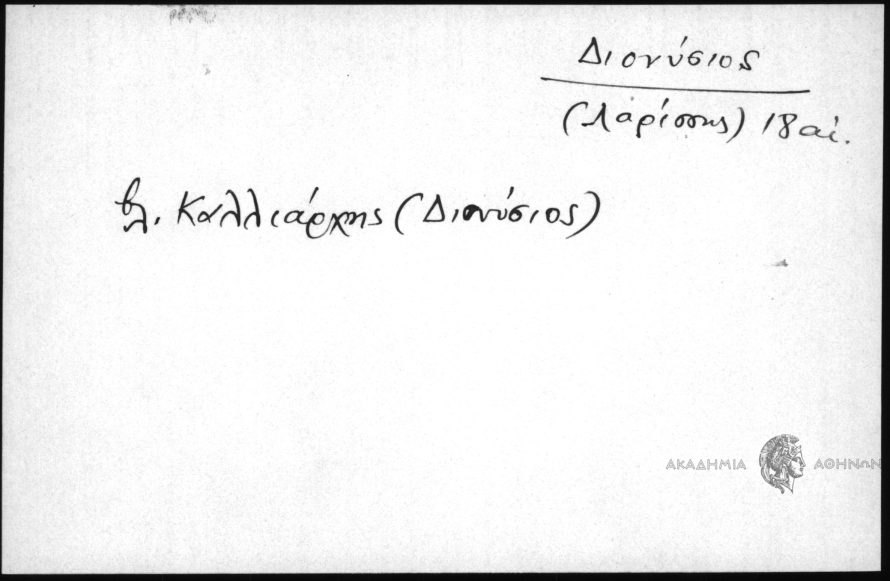 Διονύσιος
(Λαρίσσης) 18 αἰ.
βλ. Καλλιάρχης (Διονύσιος)
ΑΚΑΔΗΜΙΑ ΑΘΗΝΩΝ